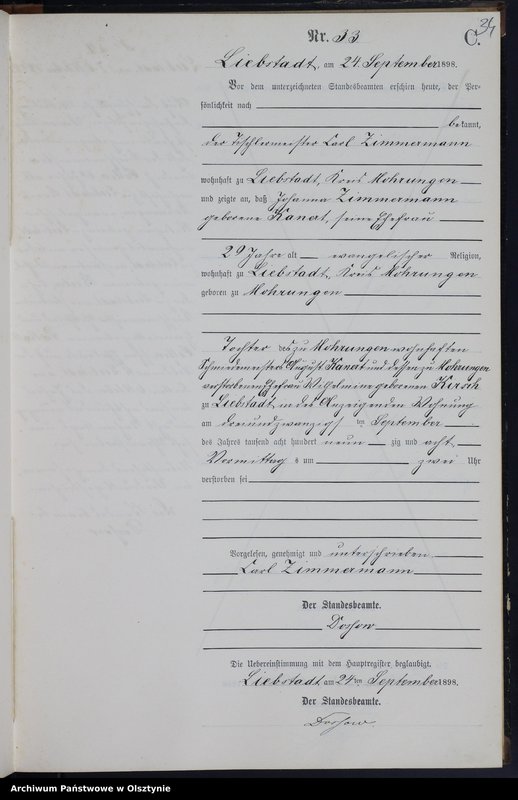 34
Nr. 33
C.
Liebstadt, am 24. September 1898.
Vor dem unterzeichneten Standesbeamten erschien heute, der Per-
sönlichkeit nach
bekannt,
der Tischlermeister Carl Zimmermann
wohnhaft zu Liebstadt, Kreis Mohrungen
und zeigte an, daß Johanna Zimmermann
geborene Kanert, seine Ehefrau
29 Jahre alt evangelischer Religion,
wohnhaft zu Liebstadt, Kreis Mohrungen
geboren zu Mohrungen
Tochter des zu Mohrungen wohnhaften
Schmiedmeisters August Kanert und dessen zu Mohrungen
verstorbenen Ehefrau Wilhelmine geborenen
zu Liebstadt, in des Anzeigenden Wohnung
am dreiundzwanzigsten September
des Jahres tausend acht hundert neunzig und acht
Vormittags um zwei Uhr
verstorben sei
Vorgelesen, genehmigt und unterschrieben
Carl Zimmermann
Der Standesbeamte.
Die Uebereinstimmung mit dem Hauptregister beglaubigt.
Liebstadt am 24ten September 1898.
Der Standesbeamte.
Archiwum Państwowe w Olsztynie